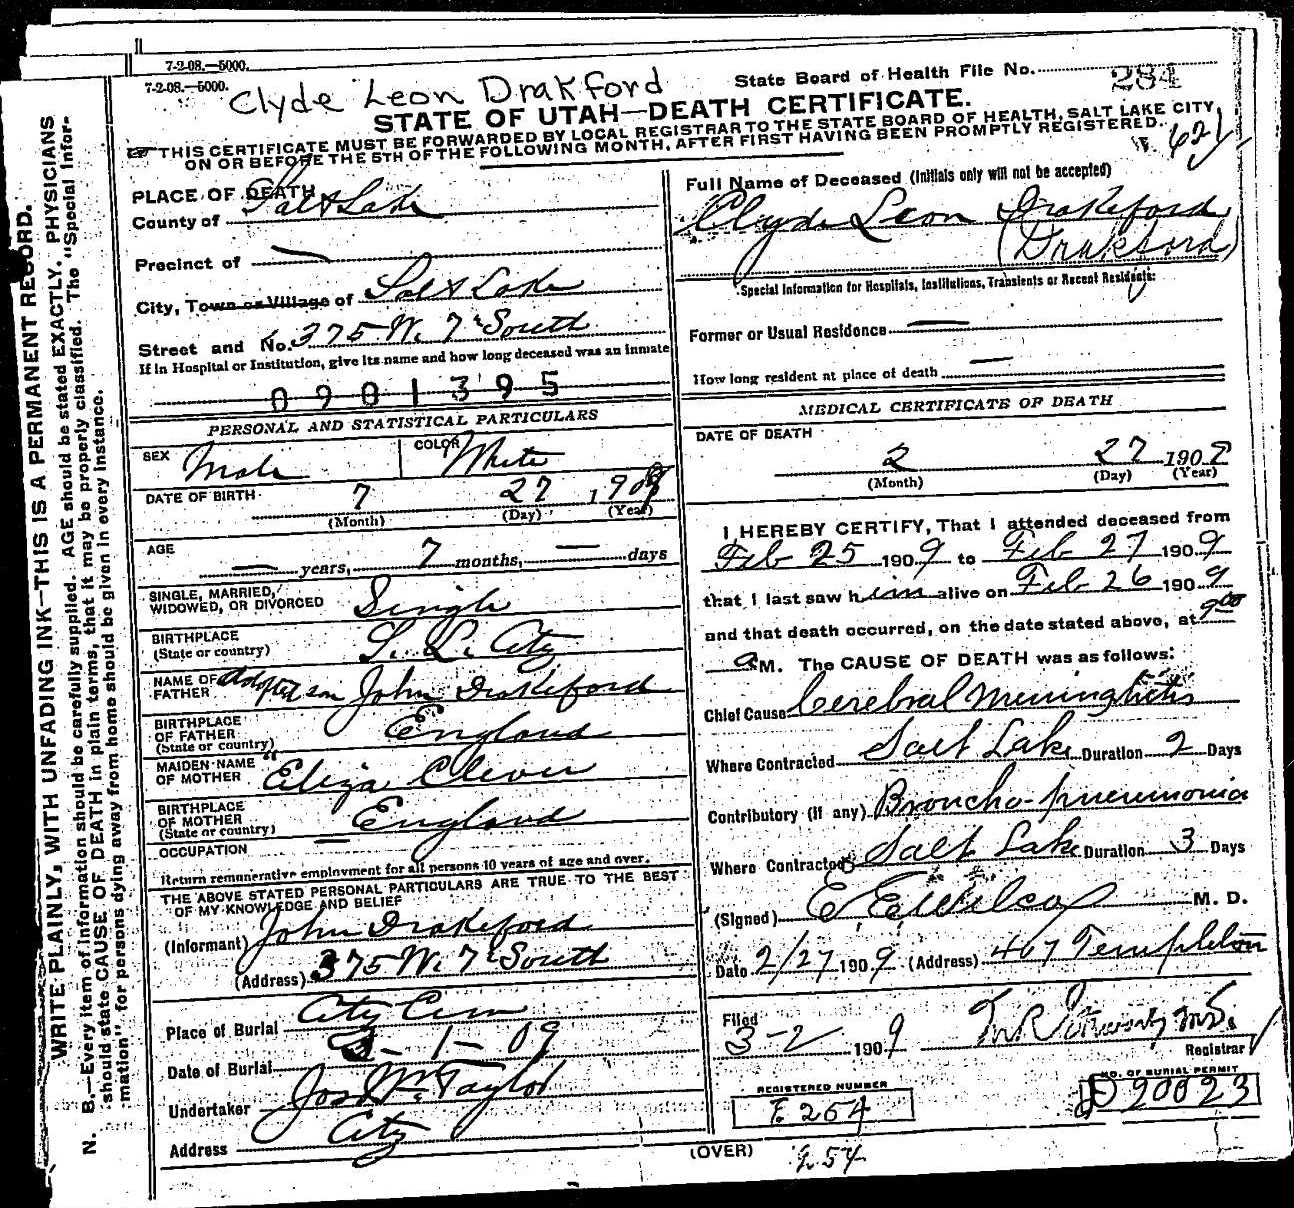 7-2-08.—5000.
7-2-08.—5000.
Clyde Leon Drakford
State Board of Health File No. 284
STATE OF UTAH—DEATH CERTIFICATE.
THIS CERTIFICATE MUST BE FORWARDED BY LOCAL REGISTRAR TO THE STATE BOARD OF HEALTH, SALT LAKE CITY,
ON OR BEFORE THE 5TH OF THE FOLLOWING MONTH, AFTER FIRST HAVING BEEN PROMPTLY REGISTERED.
WRITE PLAINLY, WITH UNFADING INK—THIS IS A PERMANENT RECORD.
N. B.—Every item of information should be carefully supplied. AGE should be stated EXACTLY. PHYSICIANS
should state CAUSE OF DEATH in plain terms, that it may be properly classified. The "Special Infor-
mation" for persons dying away from home should be given in every instance.
PLACE OF DEATH
County of Salt Lake
Precinct of —
City, Town or Village of Salt Lake
Street and No. 375 W. 7th South
If in Hospital or Institution, give its name and how long deceased was an inmate
0901395
PERSONAL AND STATISTICAL PARTICULARS
SEX Male COLOR White
DATE OF BIRTH 7 27 1908
(Month) (Day) (Year)
AGE — years, 7 months, — days
SINGLE, MARRIED,
WIDOWED, OR DIVORCED Single
BIRTHPLACE
(State or country) S. L. City
NAME OF
FATHER Adopted son John Drakeford
BIRTHPLACE
OF FATHER
(State or country) England
MAIDEN NAME
OF MOTHER " Eliza Clever
BIRTHPLACE
OF MOTHER
(State or country) England
OCCUPATION —
Return remunerative employment for all persons 10 years of age and over.
THE ABOVE STATED PERSONAL PARTICULARS ARE TRUE TO THE BEST
OF MY KNOWLEDGE AND BELIEF
(Informant) John Drakeford
(Address) 375 W. 7th South
Place of Burial City Cem
Date of Burial 3-1-09
Undertaker Jos Wm Taylor
Address City
Full Name of Deceased (Initials only will not be accepted)
Clyde Leon Drakeford
(Drakford)
Special Information for Hospitals, Institutions, Transients or Recent Residents:
Former or Usual Residence —
How long resident at place of death —
MEDICAL CERTIFICATE OF DEATH
DATE OF DEATH
2 27 1909
(Month) (Day) (Year)
I HEREBY CERTIFY, That I attended deceased from
Feb 25 1909 to Feb 27 1909
that I last saw him alive on Feb 26 1909
and that death occurred, on the date stated above, at 9:00
a M. The CAUSE OF DEATH was as follows:
Chief Cause Cerebral Meninghitis
Where Contracted Salt Lake Duration 2 Days
Contributory (if any) Broncho-pneumonia
Where Contracted Salt Lake Duration 3 Days
(Signed) E E Wilcox M. D.
Date 2/27 1909 (Address) 407 Templeton
Filed
3-2 1909
Registrar
REGISTERED NUMBER
E 254
NO. OF BURIAL PERMIT
D 20023
(OVER)